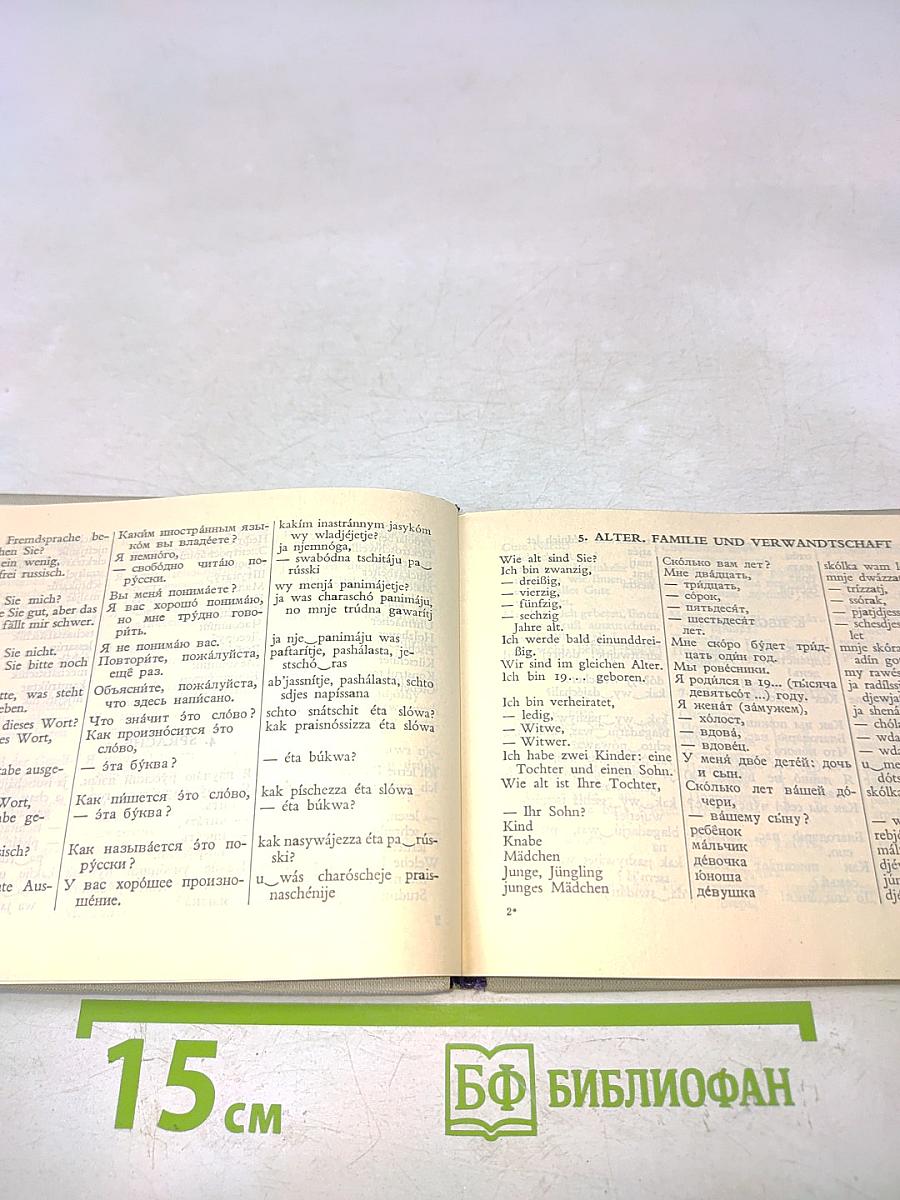 Fremdsprache be-
hen Sie?
ein wenig,
frei russisch.
Sie mich?
Sie gut, aber das
fällt mir schwer.
Sie nicht.
Sie bitte noch
was steht
eben.
dieses Wort?
Wort,
abe ausge-
Wort,
be ge-
Aus-
Каки́м иностра́нным язы-
ко́м вы владе́ете?
Я немно́го,
— свобо́дно чита́ю по-
ру́сски.
Вы меня́ понима́ете?
Я вас хорошо́ понима́ю,
но мне тру́дно гово-
ри́ть.
Я не понима́ю вас.
Повтори́те, пожа́луйста,
ещё раз.
Объясни́те, пожа́луйста,
что здесь напи́сано.
Что зна́чит э́то сло́во?
Как произно́сится э́то
сло́во,
— э́та бу́ква?
Как пи́шется э́то сло́во,
— э́та бу́ква?
Как называ́ется э́то по-
ру́сски?
У вас хоро́шее произно-
ше́ние.
kakím inastránnym jasykóm
wy wladjéjetje?
ja njemnóga,
— swabódna tschitáju pa‿
rússki
wy menjá panimájetje?
ja was charaschó panimáju,
no mnje trúdna gawarítj
ja nje‿panimáju was
paftarítje, pashálasta, je-
stschó‿ras
ab'jassnítje, pashálasta, schto
sdjes napíssana
schto snátschit éta slówa?
kak praisnóssizza éta slówa
— éta búkwa?
kak píschezza éta slówa
— éta búkwa?
kak nasywájezza éta pa‿rús-
ski?
u‿wás charóscheje prais-
naschénije
5. ALTER, FAMILIE UND VERWANDTSCHAFT
Wie alt sind Sie?
Ich bin zwanzig,
— dreißig,
— vierzig,
— fünfzig,
— sechzig
Jahre alt.
Ich werde bald einunddrei-
ßig.
Wir sind im gleichen Alter.
Ich bin 19... geboren.
Ich bin verheiratet,
— ledig,
— Witwe,
— Witwer.
Ich habe zwei Kinder: eine
Tochter und einen Sohn.
Wie alt ist Ihre Tochter,
— Ihr Sohn?
Kind
Knabe
Mädchen
Junge, Jüngling
junges Mädchen
2*
Ско́лько вам лет?
Мне два́дцать,
— три́дцать,
— со́рок,
— пятьдеся́т,
— шестьдеся́т
лет.
Мне ско́ро бу́дет три́д-
цать оди́н год.
Мы рове́сники.
Я роди́лся в 19... (ты́сяча
девятьсо́т ...) году.
Я жена́т (за́мужем),
— хо́лост,
— вдова́,
— вдове́ц.
У меня́ дво́е дете́й: дочь
и сын.
Ско́лько лет ва́шей до́-
чери,
— ва́шему сы́ну?
ребёнок
ма́льчик
де́вочка
ю́ноша
де́вушка
skólka wam
mnje dwázzat
— trízzatj,
— ssórak,
— pjatjdjess
— schesdjes
let
mnje skóra
adín go
my rawés
ja radílssi
djewja
ja shená
— chóla
— wda
— wda
u‿me
dóts
skólka
15 см
БФ БИБЛИОФАН